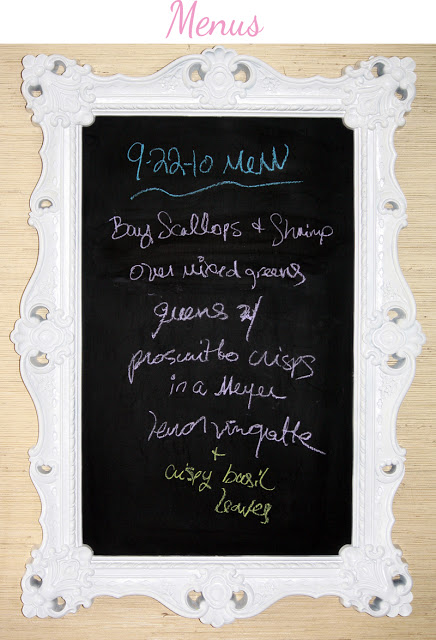 Menus
9-22-10 Menu
Bay Scallops & Shrimp
over mixed greens
greens w/
proscuitto crisps
in a Meyer
lemon vingatte
+
crispy basil
leaves